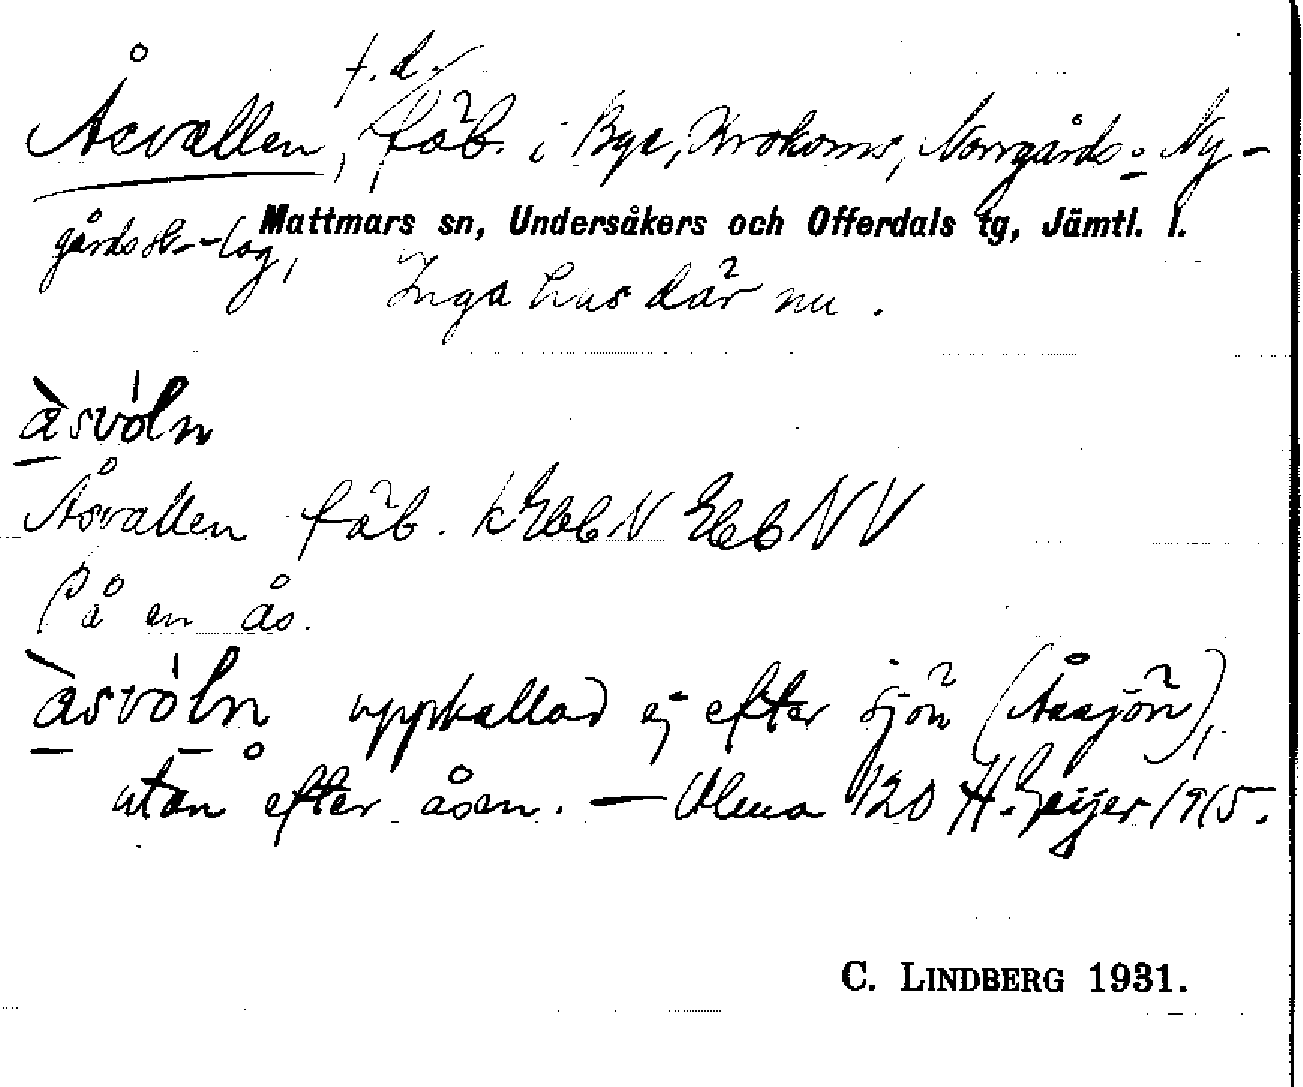 f.d.
Åsvallen, fäb. i Bye, Krokoms, Norrgårds o Ny-
Mattmars sn, Undersåkers och Offerdals tg, Jämtl. l.
gårds sk-lag,
Inga hus där nu.
àsvóln
Åsvallen fäb.
På en ås.
àsvóln uppkallad ej efter sjön (Åasjön),
utan efter åsen. — Ulma 120 H. Geijer 1915.
C. LINDBERG 1931.